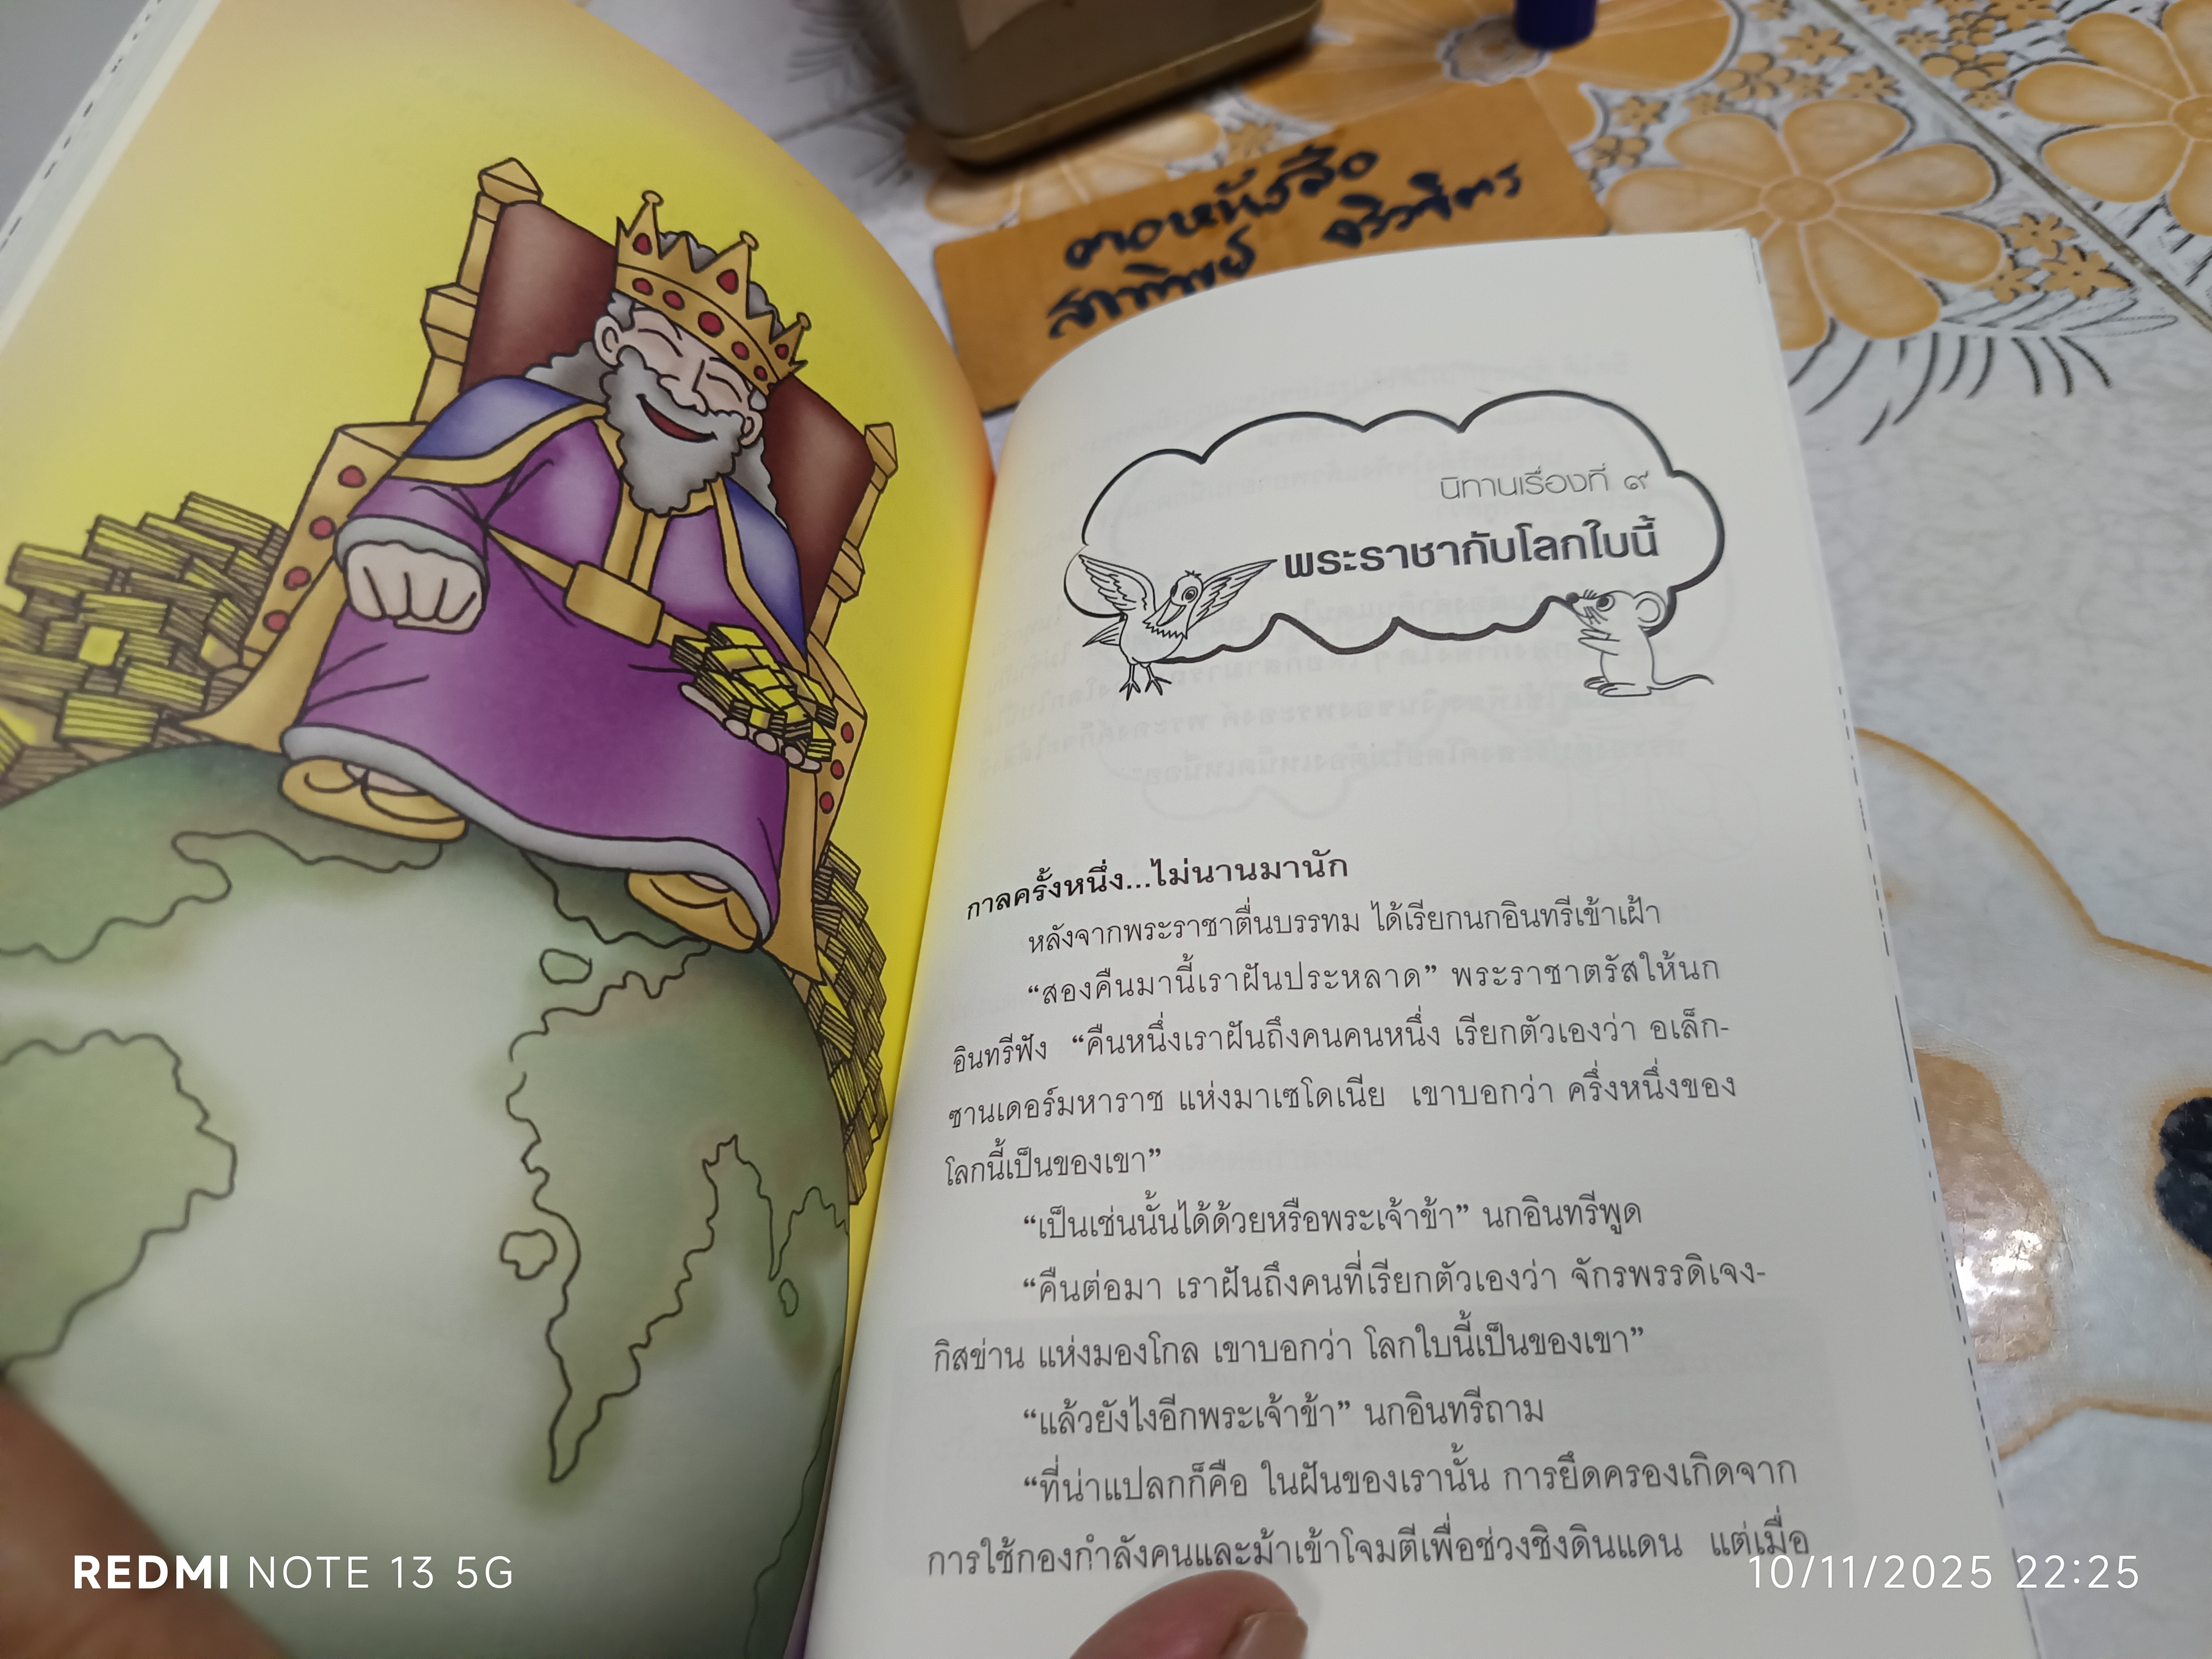 ตอหนังสือ
สาทิพย์ จิรวิจิตร
นิทานเรื่องที่ ๙
พระราชากับโลกใบนี้
กาลครั้งหนึ่ง...ไม่นานมานัก
หลังจากพระราชาตื่นบรรทม ได้เรียกนกอินทรีเข้าเฝ้า
“สองคืนมานี้เราฝันประหลาด” พระราชาตรัสให้นก
อินทรีฟัง “คืนหนึ่งเราฝันถึงคนคนหนึ่ง เรียกตัวเองว่า อเล็ก-
ซานเดอร์มหาราช แห่งมาเซโดเนีย เขาบอกว่า ครึ่งหนึ่งของ
โลกนี้เป็นของเขา”
“เป็นเช่นนั้นได้ด้วยหรือพระเจ้าข้า” นกอินทรีพูด
“คืนต่อมา เราฝันถึงคนที่เรียกตัวเองว่า จักรพรรดิเจง-
กิสข่าน แห่งมองโกล เขาบอกว่า โลกใบนี้เป็นของเขา”
“แล้วยังไงอีกพระเจ้าข้า” นกอินทรีถาม
“ที่น่าแปลกก็คือ ในฝันของเรานั้น การยึดครองเกิดจาก
การใช้กองกำลังคนและม้าเข้าโจมตีเพื่อช่วงชิงดินแดน แต่เมื่อ
REDMI NOTE 13 5G
10/11/2025 22:25